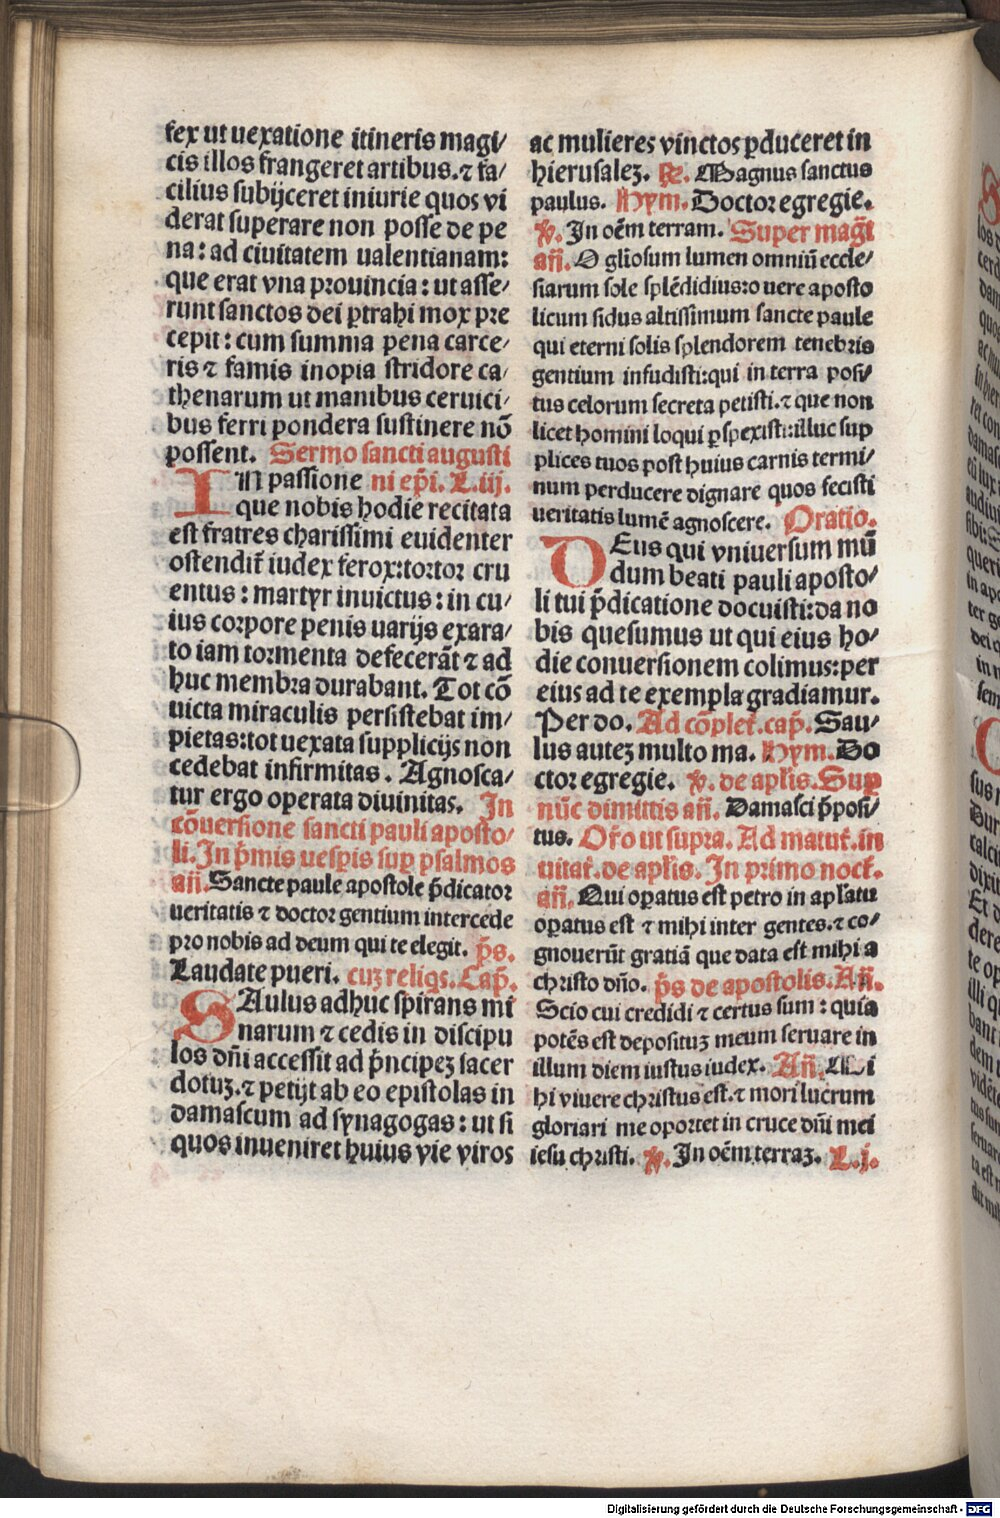 fex ut uexatione itineris magi/
cis illos frangeret artibus.⁊ fa/
cilius subijceret iniurie quos vi
derat superare non posse de pe
na: ad ciuitatem ualentianam:
que erat vna prouincia: ut asse/
runt sanctos dei ꝑtrahi mox pre
cepit: cum summa pena carce/
ris ⁊ famis inopia stridore ca/
thenarum ut manibus ceruici/
bus ferri pondera sustinere nō
possent. Sermo sancti augusti
IN passione ni ep̄i. L.iij.
que nobis hodie recitata
est fratres charissimi euidenter
ostendit̄ iudex ferox:tortor cru
entus: martyr inuictus: in cu/
ius corpore penis uarijs exara/
to iam tormenta defecerāt ⁊ ad
huc membra durabant. Tot cō
uicta miraculis persistebat im/
pietas:tot uexata supplicijs non
cedebat infirmitas. Agnosca/
tur ergo operata diuinitas. In
cōuersione sancti pauli aposto/
li. In p̄mis uesꝑis suꝑ psalmos
añ. Sancte paule apostole p̄dicator
ueritatis ⁊ doctor gentium intercede
pro nobis ad deum qui te elegit. p̄s.
Laudate pueri. cuꝫ reliqs. Cap̄.
SAulus adhuc spirans mi
narum ⁊ cedis in discipu
los dñi accessit ad p̄ncipeꝫ sacer
dotuꝫ.⁊ petijt ab eo epistolas in
damascum ad synagogas: ut si
quos inueniret huius vie viros
ac mulieres vinctos ꝑduceret in
hierusaleꝫ. ℟. Magnus sanctus
paulus. Hym. Doctor egregie.
℣. In oēm terram. Super maḡt
añ. O gl̄iosum lumen omniū eccle/
siarum sole splēdidius:o uere aposto
licum sidus altissimum sancte paule
qui eterni solis splendorem tenebris
gentium infudisti:qui in terra posi/
tus celorum secreta petisti.⁊ que non
licet homini loqui ꝑspexisti:illuc sup
plices tuos post huius carnis termi/
num perducere dignare quos fecisti
ueritatis lumē agnoscere. Oratio.
DEus qui vniuersum mū
dum beati pauli aposto/
li tui p̄dicatione docuisti:da no
bis quesumus ut qui eius ho/
die conuersionem colimus:per
eius ad te exempla gradiamur.
Per do. Ad cōplet̄. cap̄. Sau/
lus auteꝫ multo ma. Hym. Do
ctor egregie. ℣. de apl̄is. Suꝑ
nūc dimittis añ. Damasci p̄posi/
tus. Or̄o ut supra. Ad matut̄. in
uitat̄. de apl̄is. In primo noct̄.
añ. Qui oꝑatus est petro in apl̄atu
oꝑatus est ⁊ mihi inter gentes.⁊ co/
gnouerūt gratiā que data est mihi a
christo dño. p̄s de apostolis. Añ.
Scio cui credidi ⁊ certus sum: quia
potēs est depositum meum seruare in
illum diem iustus iudex. Añ. Mi
hi viuere christus est.⁊ mori lucrum
gloriari me oportet in cruce dñi mei
iesu christi. ℣. In oēm terraꝫ. L.j.
Digitalisierung gefördert durch die Deutsche Forschungsgemeinschaft - DFG